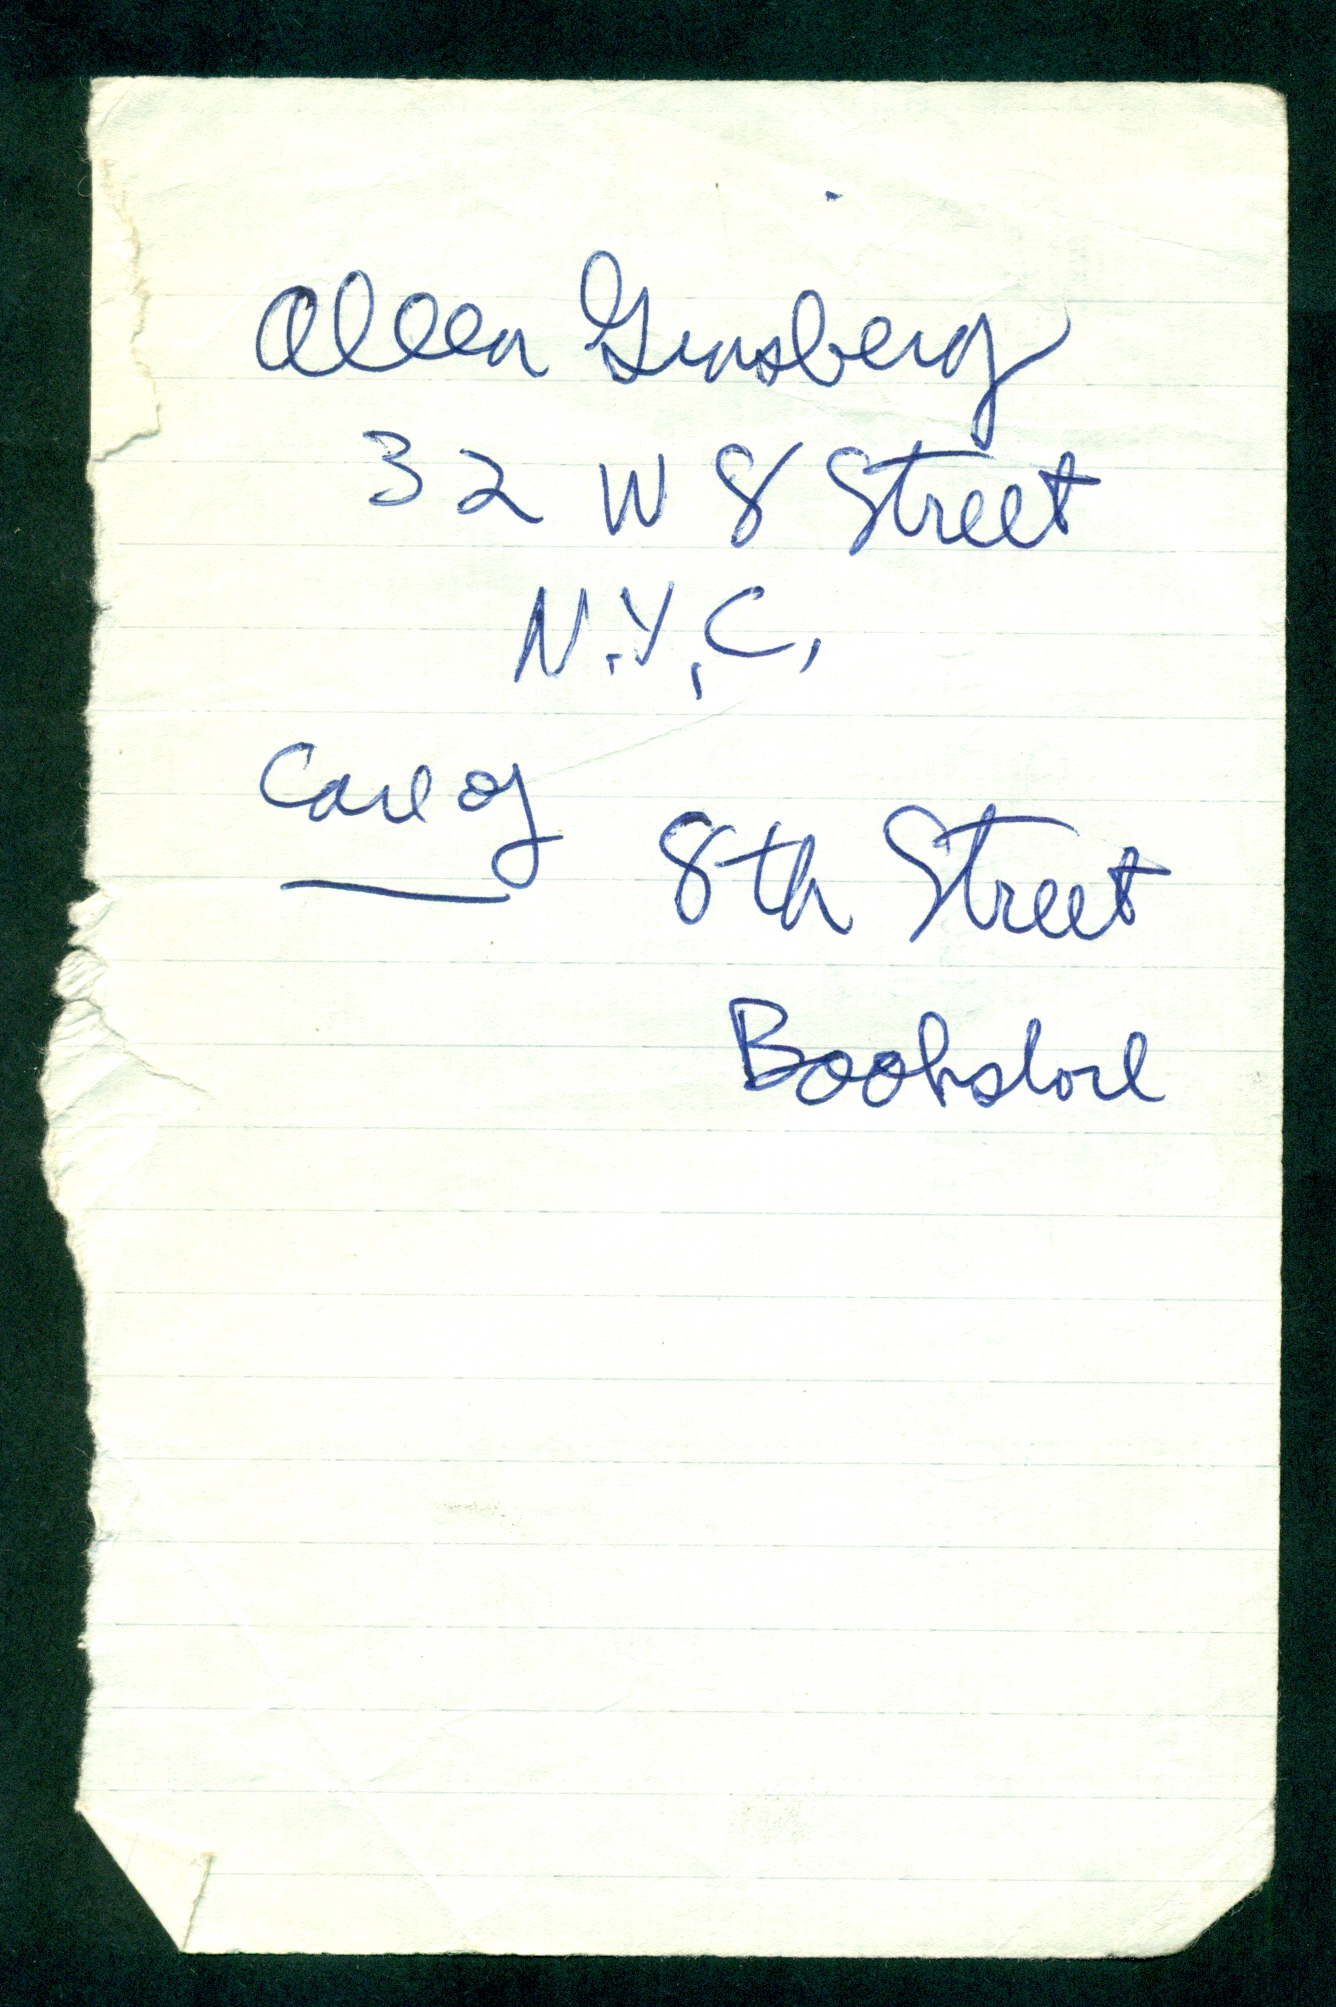 Allen Ginsberg
32 W 8 Street
N.Y.C.
Care of
8th Street
Bookstore